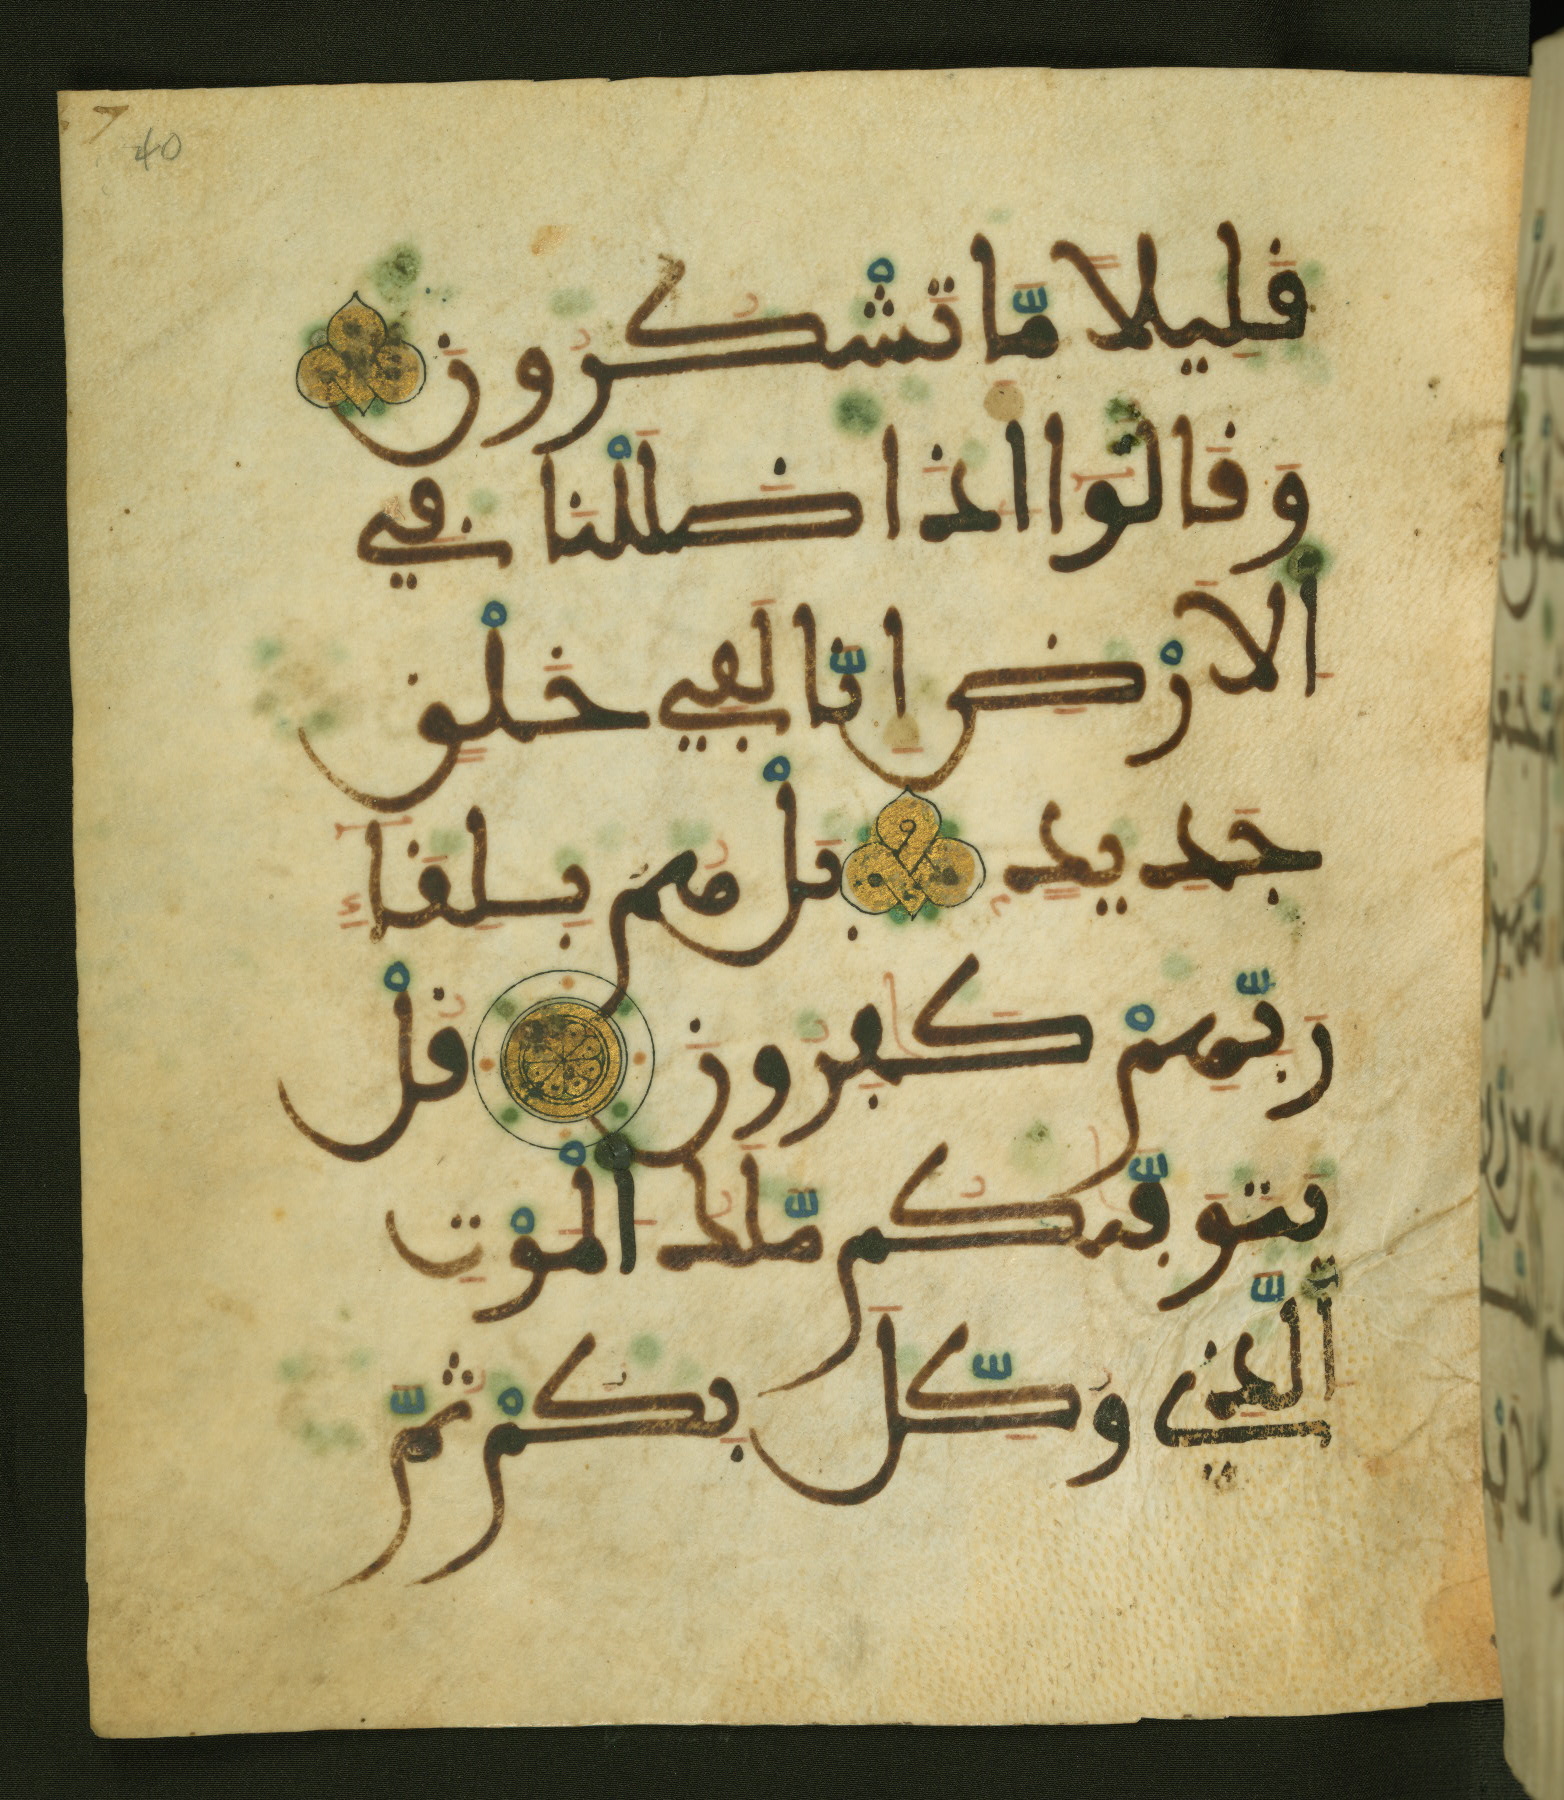 40
قَلِيلًا مَّا تَشْكُرُونَ
وَقَالُوٓا۟ اَ۟ذَا ضَلَلْنَا فِي
اَ۬لَارْضِ إِنَّا لَفِي خَلْقٍ
جَدِيدٍۢ بَلْ هُم بِلِقَآءِ
رَبِّهِمْ كَٰفِرُونَ قُلْ
يَتَوَفّيٰكُم مَّلَكُ اُ۬لْمَوْتِ
اَ۬لذِّي وُكِّلَ بِكُمْ ثُمَّ